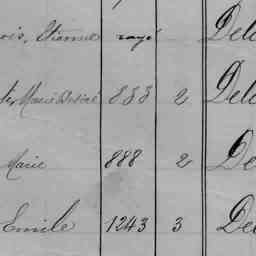 ois, Etienne rayé Del
Marie Désiré 888 2 Del
Marie 888 2 De
Emile 1243 3 Del